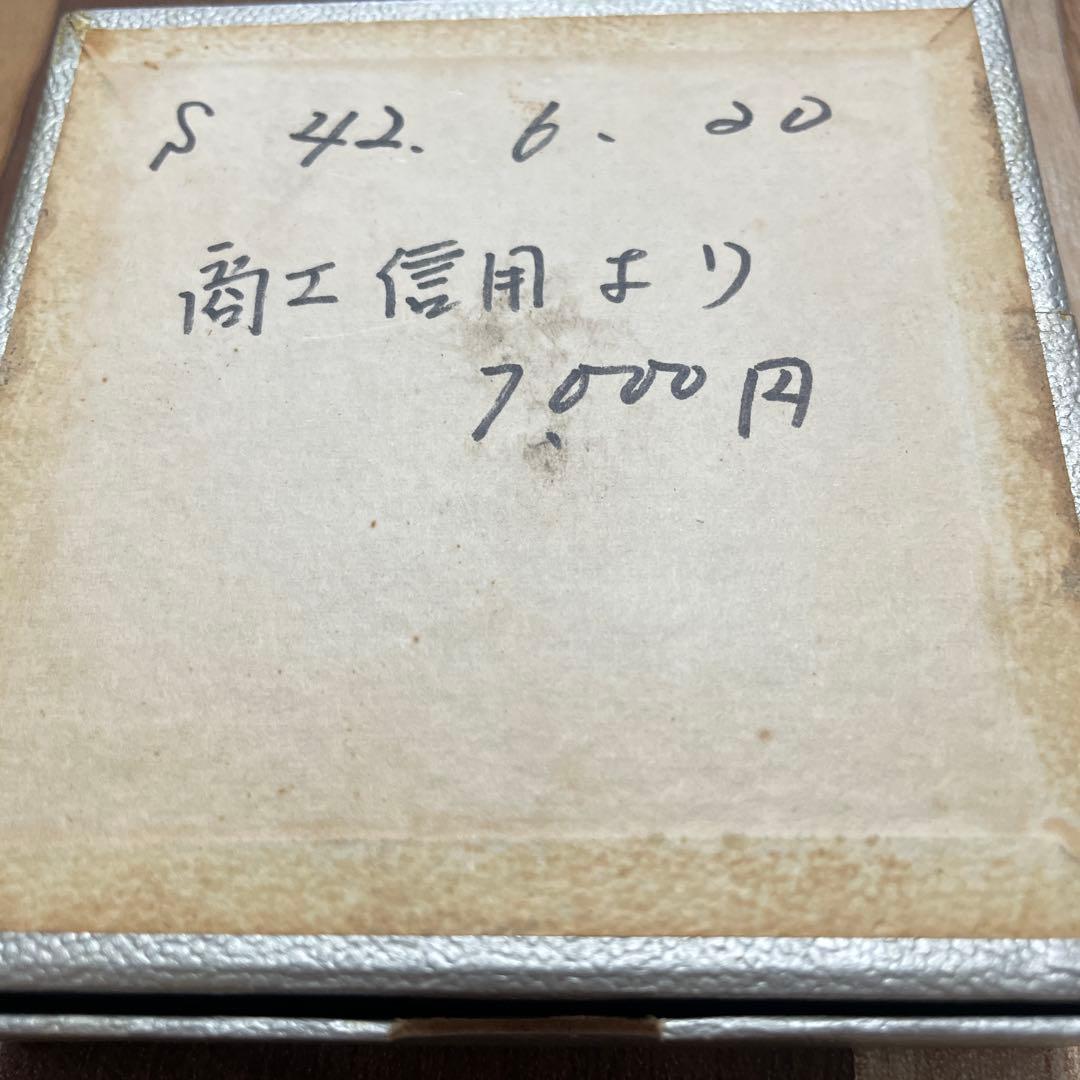 S 42. 6. 20
商工信用より
7,000円